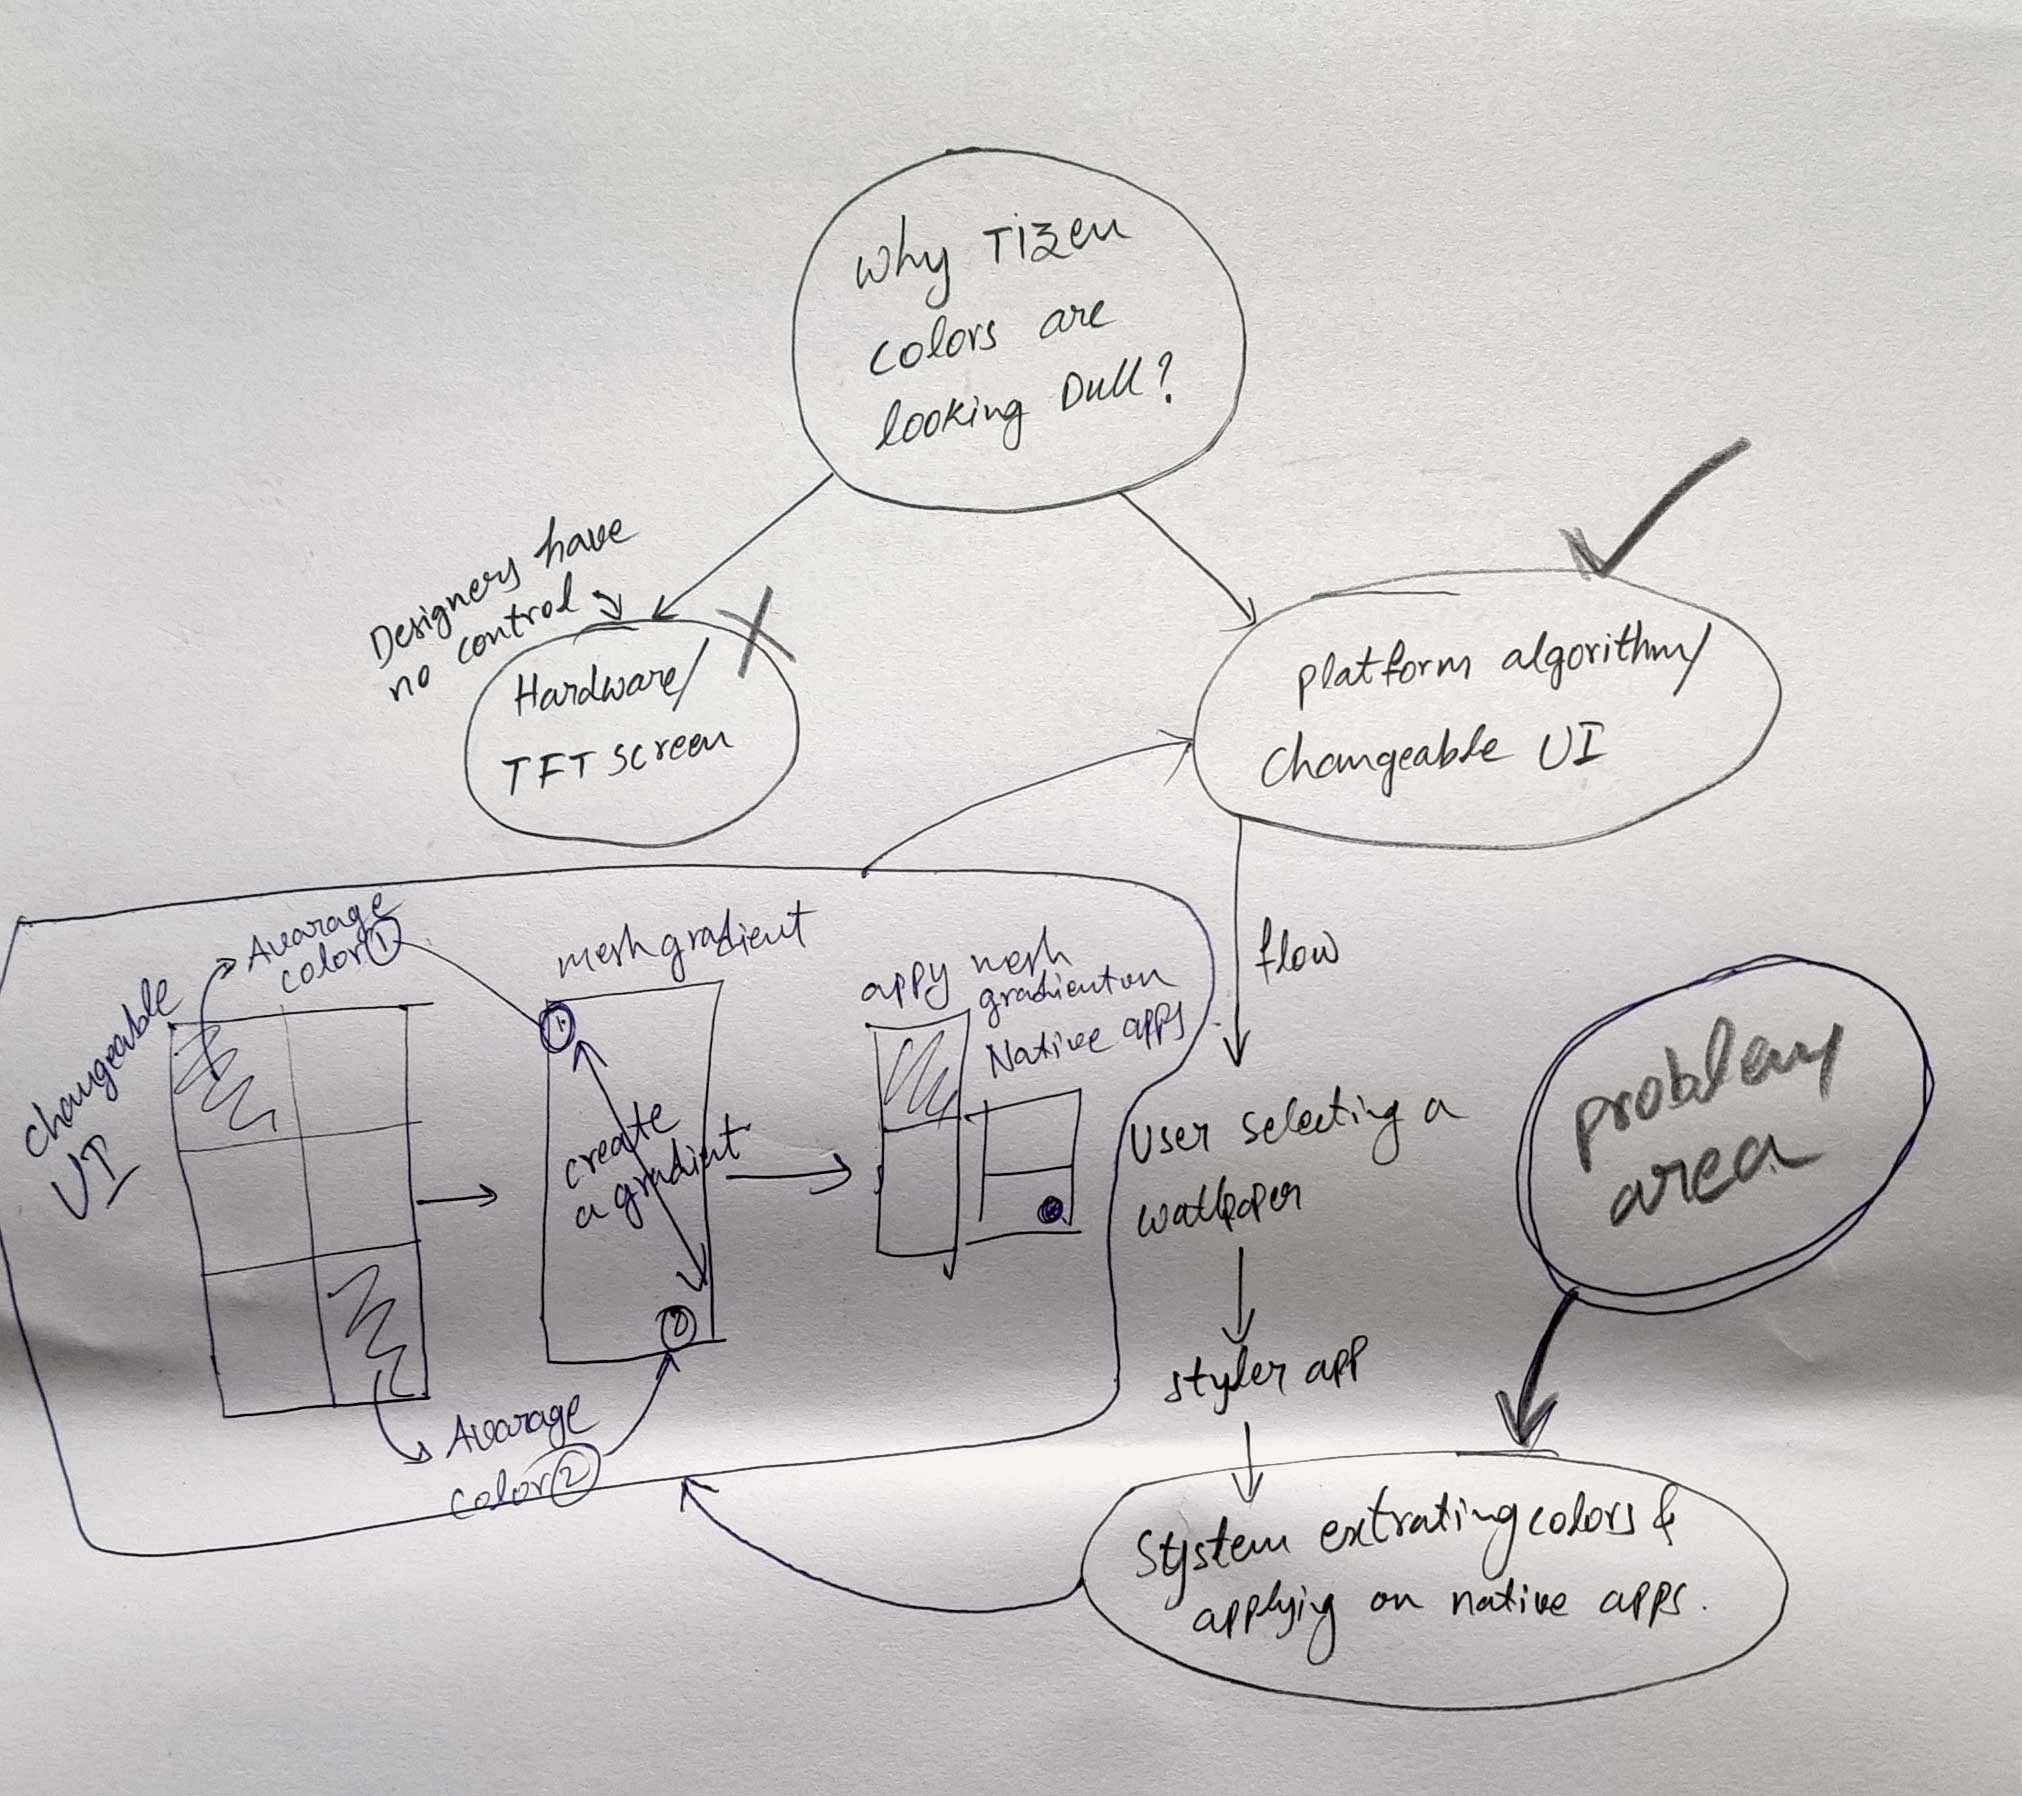 Why Tizen
colors are
looking Dull?
Designers have
no control
Hardware/
TFT screen
platform algorithm/
changeable UI
flow
User selecting a
wallpaper
styler app
System extrating colors &
applying on native apps.
problem
area
changeable
UI
Avarage
color ①
mesh gradient
①
create
a gradient
②
Avarage
color ②
appy mesh
gradient on
Native apps